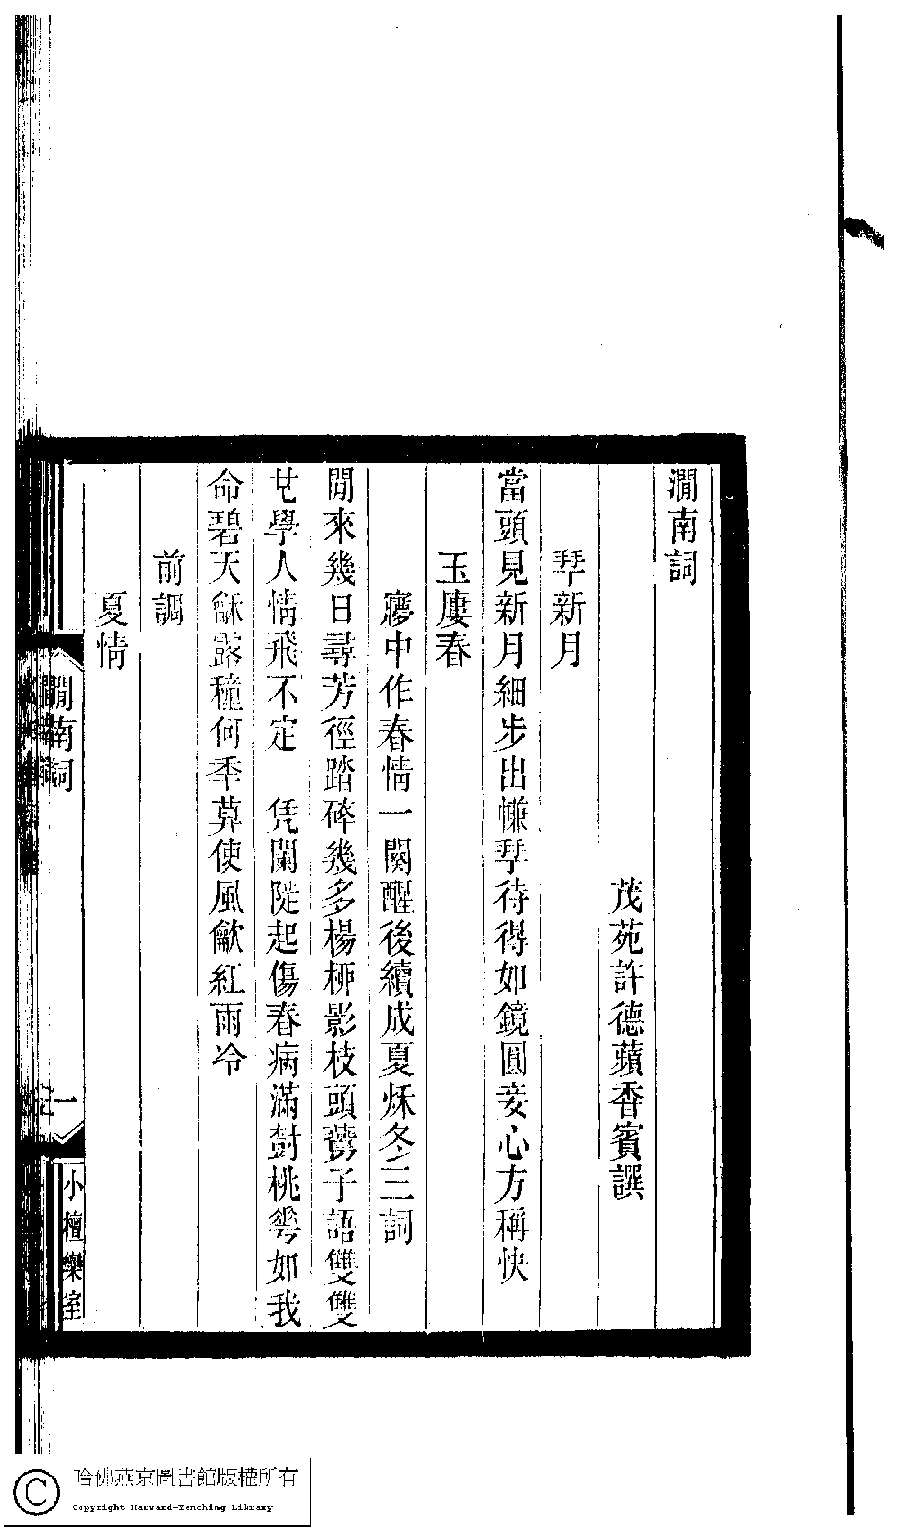 澗南詞
茂苑許德蘋香賓譔
拜新月
當頭見新月細步出㡘拜待得如鏡圓妾心方稱快
玉廔春
㝱中作春情一闋醒後續成夏秌冬三詞
閒來幾日尋芳徑踏碎幾多楊桺影枝頭鷰子語雙雙
也學人情飛不定　凭闌陡起傷春病滿尌桃䓉如我
命碧天龢露穜何秊莫使風龡紅雨冷
前調
夏情
澗南詞
一
小檀欒室
哈佛燕京圖書館版權所有
Copyright Harvard-Yenching Library